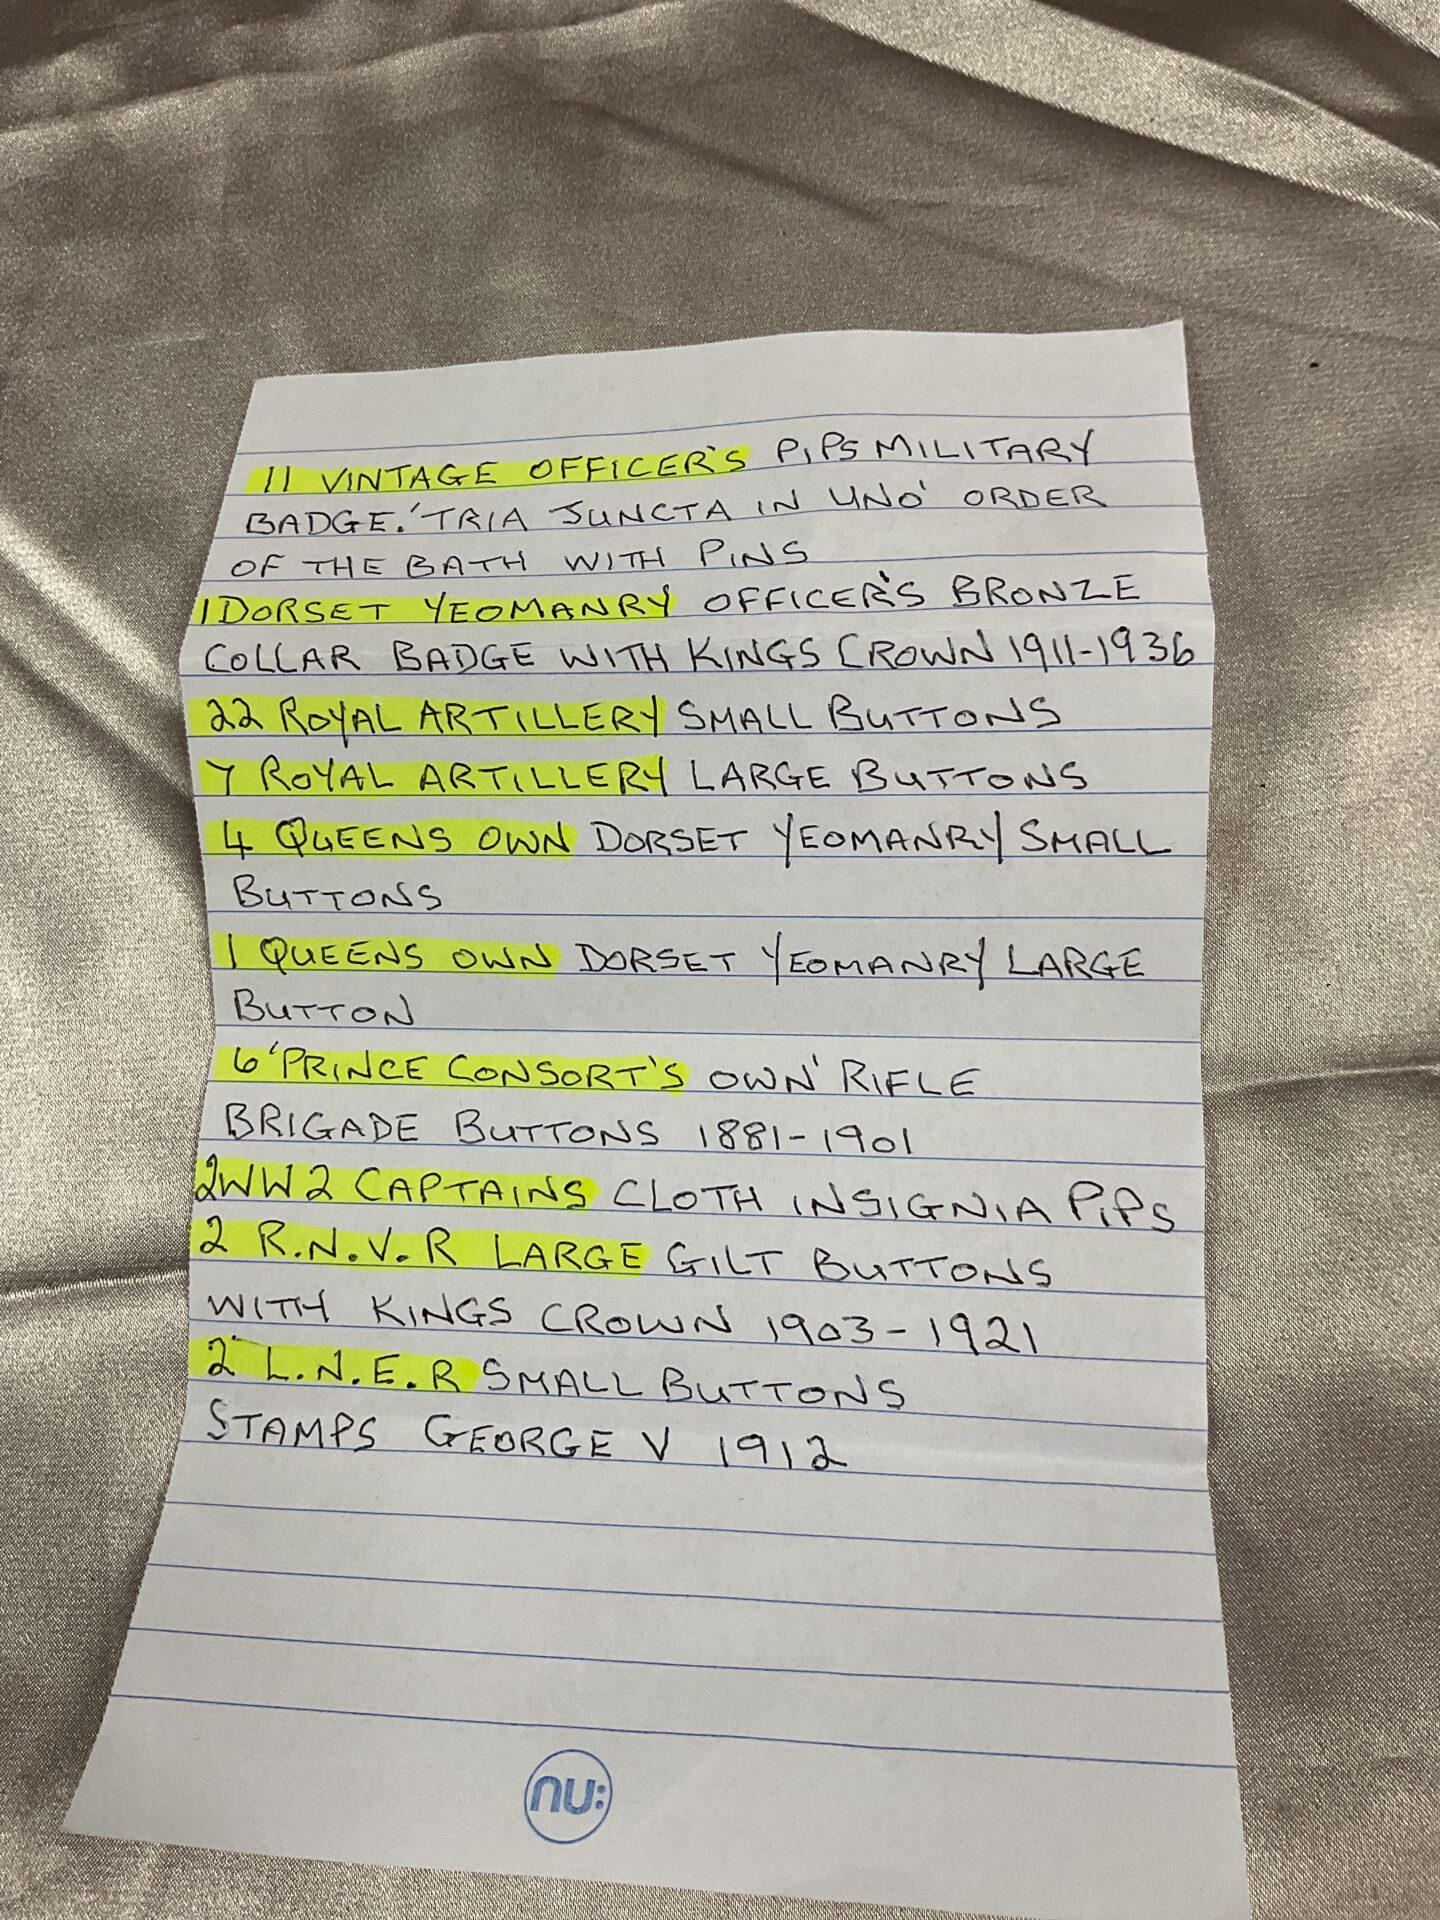 11 VINTAGE OFFICER'S PIPS MILITARY
BADGE.'TRIA JUNCTA IN UNO' ORDER
OF THE BATH WITH PINS
1 DORSET YEOMANRY OFFICER'S BRONZE
COLLAR BADGE WITH KINGS CROWN 1911-1936
22 ROYAL ARTILLERY SMALL BUTTONS
7 ROYAL ARTILLERY LARGE BUTTONS
4 QUEENS OWN DORSET YEOMANRY SMALL
BUTTONS
1 QUEENS OWN DORSET YEOMANRY LARGE
BUTTON
6 'PRINCE CONSORT'S OWN' RIFLE
BRIGADE BUTTONS 1881-1901
2 WW2 CAPTAINS CLOTH INSIGNIA PIPS
2 R.N.V.R LARGE GILT BUTTONS
WITH KINGS CROWN 1903-1921
2 L.N.E.R SMALL BUTTONS
STAMPS GEORGE V 1912
nu: